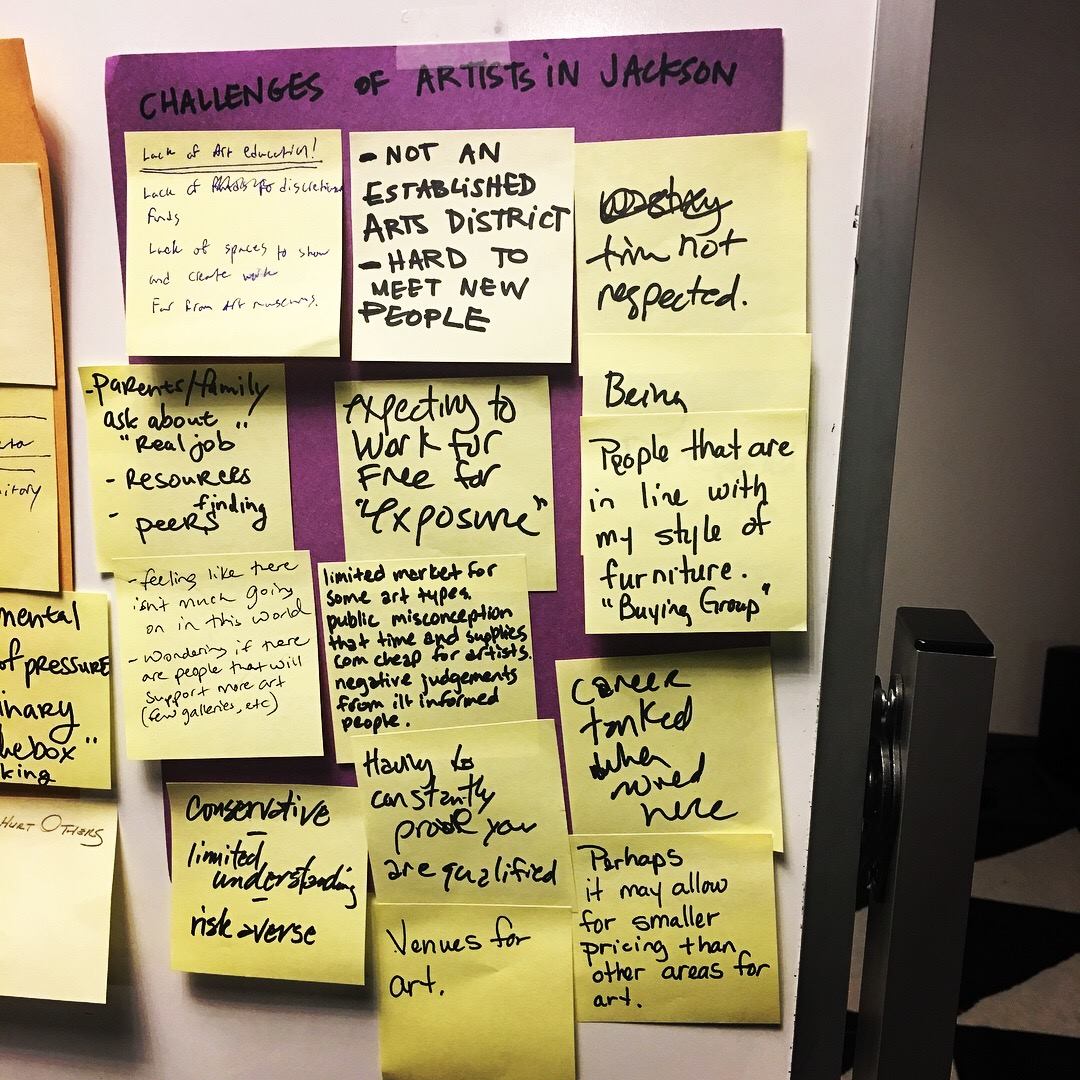 CHALLENGES OF ARTISTS IN JACKSON
Lack of Art education!
Lack of discretionary
funds
Lack of spaces to show
and create work
Far from Art museums.
- NOT AN
ESTABLISHED
ARTS DISTRICT
- HARD TO
MEET NEW
PEOPLE
not
respected.
- Parents/family
ask about
"Real job"
- Resources
- finding
peers
expecting to
work for
Free for
"exposure"
Being
People that are
in line with
my style of
furniture.
"Buying Group"
- feeling like there
isn't much going
on in this world
- Wondering if there
are people that will
support more art
(few galleries, etc)
limited market for
some art types.
public misconception
that time and supplies
com cheap for artists.
negative judgements
from ill informed
people.
Career
tanked
when
moved
here
Having to
constantly
prove you
are qualified
conservative
-
limited
understanding
-
risk averse
Perhaps
it may allow
for smaller
pricing than
other areas for
art.
Venues for
art.
itory
mental
of pressure
inary
the box"
king
HURT OTHERS